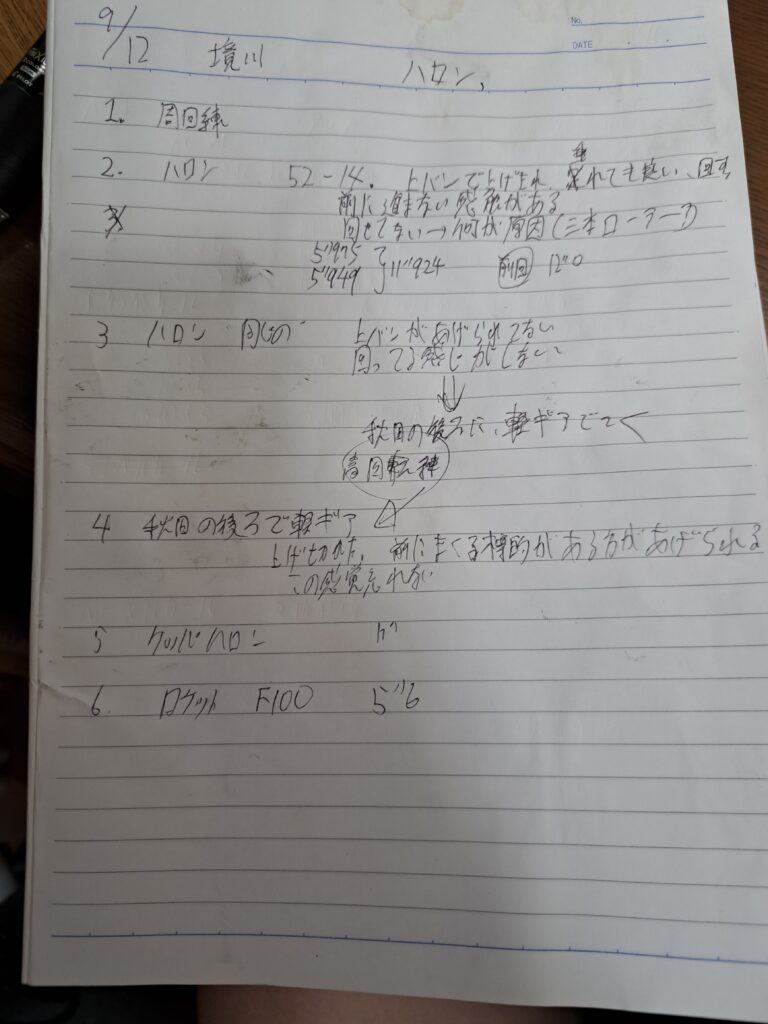 No.
DATE
9/12 境川 ハロン、
1. 周回練
2. ハロン 52-14. 上バンで上げきれ 乗れても軽い、回す
前に進まない感覚がある
回せてない→何が原因(三本ローラー?)
5"975
5"949 } 11"924 前回 12"0
3 ハロン 同じの 上バンがあげられてない
回ってる感じがしない
⇓
秋田の後ろに、軽ギアでつく
高回転練
4 秋田の後ろで軽ギア
上げ切れた。前にまくる標的がある方があげられる
この感覚忘れない
5 ケツパハロン
6. ロケット F100 5"6